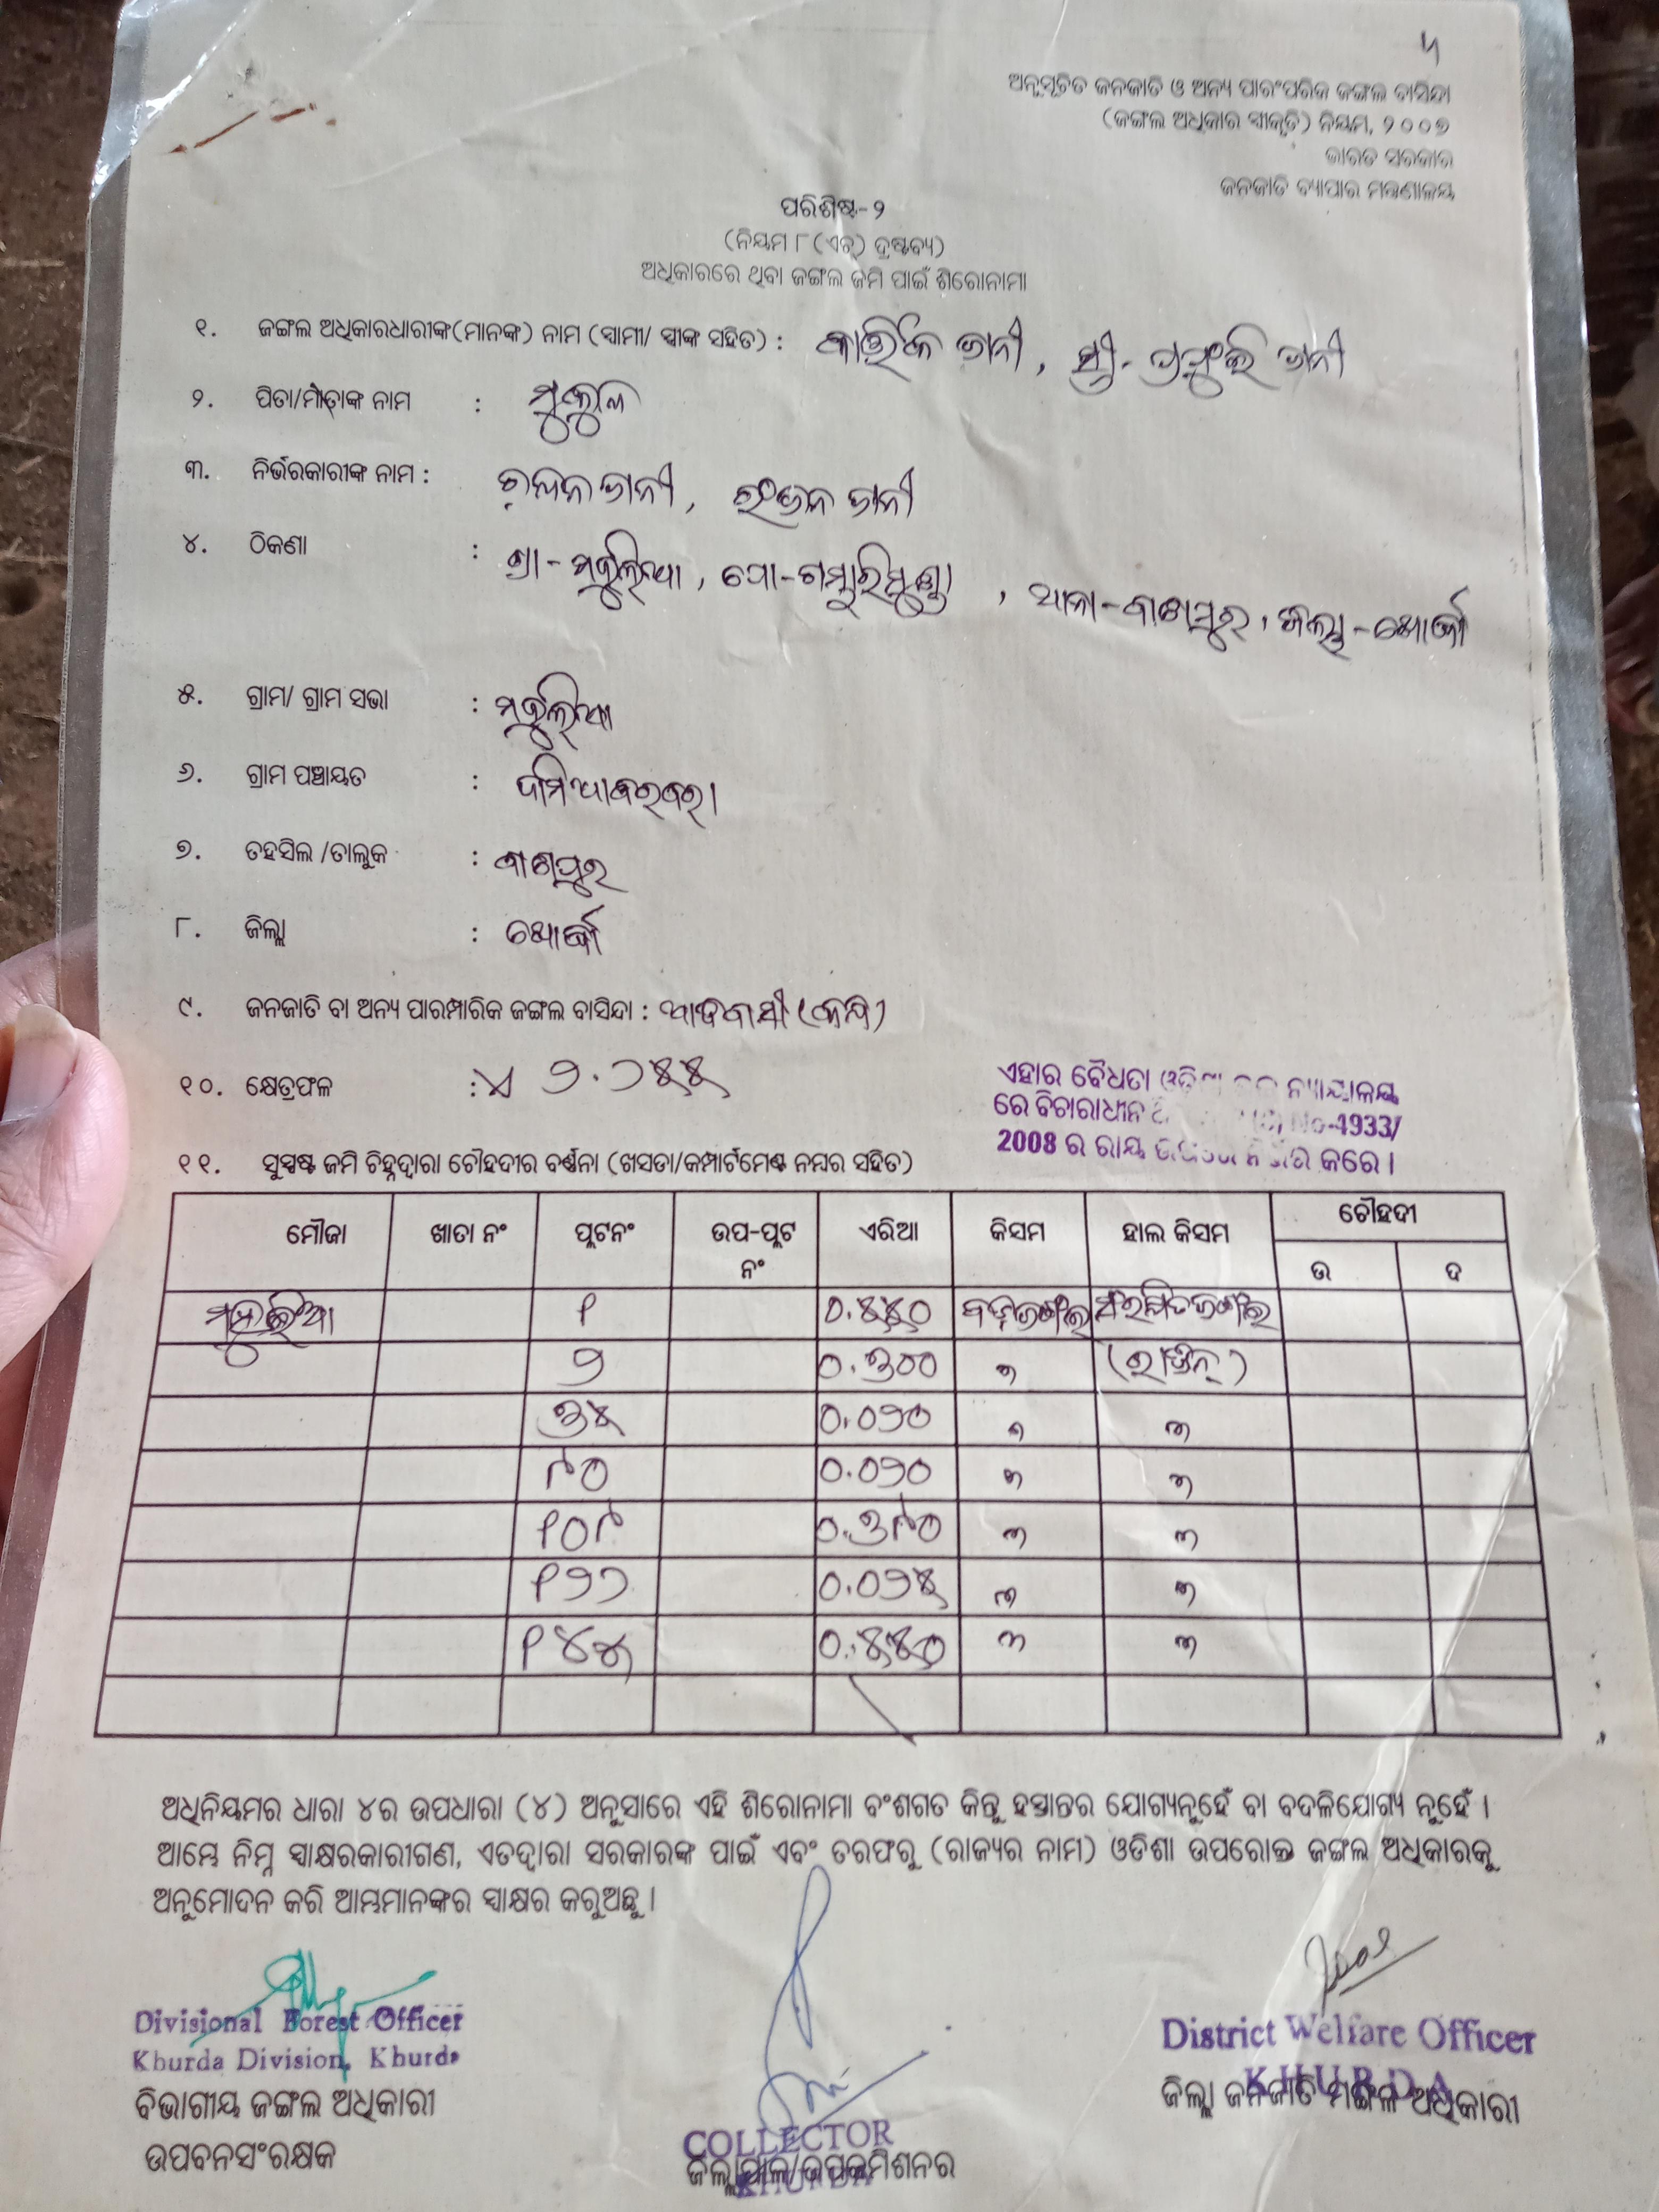 ୳
ଅନୁସୂଚିତ ଜନଜାତି ଓ ଅନ୍ୟ ପାରଂପରିକ ଜଙ୍ଗଲ ବାସିନ୍ଦା
(ଜଙ୍ଗଲ ଅଧିକାର ସ୍ୱୀକୃତି) ନିୟମ, ୨୦୦୭
ଭାରତ ସରକାର
ଜନଜାତି ବ୍ୟାପାର ମନ୍ତ୍ରଣାଳୟ
ପରିଶିଷ୍ଟ-୨
(ନିୟମ ୮(ଏଚ୍) ଦ୍ରଷ୍ଟବ୍ୟ)
ଅଧିକାରରେ ଥିବା ଜଙ୍ଗଲ ଜମି ପାଇଁ ଶିରୋନାମା
୧. ଜଙ୍ଗଲ ଅଧିକାରଧାରୀଙ୍କ(ମାନଙ୍କ) ନାମ (ସ୍ୱାମୀ/ ସ୍ତ୍ରୀଙ୍କ ସହିତ) : କାର୍ତ୍ତିକ ଜାନୀ, ସ୍ତ୍ରୀ- ଜାନୀ
୨. ପିତା/ମାତାଙ୍କ ନାମ : ମୁକୁଳ
୩. ନିର୍ଭରକାରୀଙ୍କ ନାମ : ଚନ୍ଦନ ଜାନୀ, ରଂଜନ ଜାନୀ
୪. ଠିକଣା : ଗ୍ରା- , ପୋ-ଗମ୍ଭାରିମୁଣ୍ଡା, ଥାନା-ବାଣପୁର, ଜିଲ୍ଲା-ଖୋର୍ଦ୍ଧା
୫. ଗ୍ରାମ/ ଗ୍ରାମ ସଭା :
୬. ଗ୍ରାମ ପଞ୍ଚାୟତ : ଦାମିଆବରବରା
୭. ତହସିଲ /ତାଲୁକ : ବାଣପୁର
୮. ଜିଲ୍ଲା : ଖୋର୍ଦ୍ଧା
୯. ଜନଜାତି ବା ଅନ୍ୟ ପାରମ୍ପାରିକ ଜଙ୍ଗଲ ବାସିନ୍ଦା : ଆଦିବାସୀ (କନ୍ଧ)
୧୦. କ୍ଷେତ୍ରଫଳ : ୨.୨୫୫
ଏହାର ବୈଧତା ନ୍ୟାୟାଳୟ
ରେ ବିଚାରାଧୀନ No-4933/
2008 ର ରାୟ କରେ ।
୧୧. ସୁସ୍ପଷ୍ଟ ଜମି ଚିହ୍ନଦ୍ୱାରା ଚୌହଦୀର ବର୍ଣ୍ଣନା (ଖସଡା/କମ୍ପାର୍ଟମେଣ୍ଟ ନମ୍ବର ସହିତ)
ମୌଜା ଖାତା ନଂ ପ୍ଲଟନଂ ଉପ-ପ୍ଲଟ ନଂ ଏରିଆ କିସମ ହାଲ କିସମ ଚୌହଦୀ
ଉ ଦ
୧ ୦.୫୫୦ ସଂରକ୍ଷିତଜଙ୍ଗଲ
୨ ୦.୩୦୦ "
୩୫ ୦.୦୨୦ " "
୯୦ ୦.୦୨୦ " "
୧୦୯ ୦.୩୯୦ " "
୧୨୨ ୦.୦୨୫ " "
୧୪୫ ୦.୫୫୦ " "
ଅଧିନିୟମର ଧାରା ୪ର ଉପଧାରା (୪) ଅନୁସାରେ ଏହି ଶିରୋନାମା ବଂଶଗତ କିନ୍ତୁ ହସ୍ତାନ୍ତର ଯୋଗ୍ୟନୁହେଁ ବା ବଦଳିଯୋଗ୍ୟ ନୁହେଁ ।
ଆମ୍ଭେ ନିମ୍ନ ସ୍ୱାକ୍ଷରକାରୀଗଣ, ଏତଦ୍ୱାରା ସରକାରଙ୍କ ପାଇଁ ଏବଂ ତରଫରୁ (ରାଜ୍ୟର ନାମ) ଓଡିଶା ଉପରୋକ୍ତ ଜଙ୍ଗଲ ଅଧିକାରକୁ
ଅନୁମୋଦନ କରି ଆମ୍ଭମାନଙ୍କର ସ୍ୱାକ୍ଷର କରୁଅଛୁ ।
Divisional Forest Officer
Khurda Division, Khurda
ବିଭାଗୀୟ ଜଙ୍ଗଲ ଅଧିକାରୀ
ଉପବନସଂରକ୍ଷକ
COLLECTOR
KHURDA
ଜିଲ୍ଲାପାଳ/ଉପକମିଶନର
District Welfare Officer
KHURDA
ଜିଲ୍ଲା ଜନଜାତି ମଙ୍ଗଳ ଅଧିକାରୀ